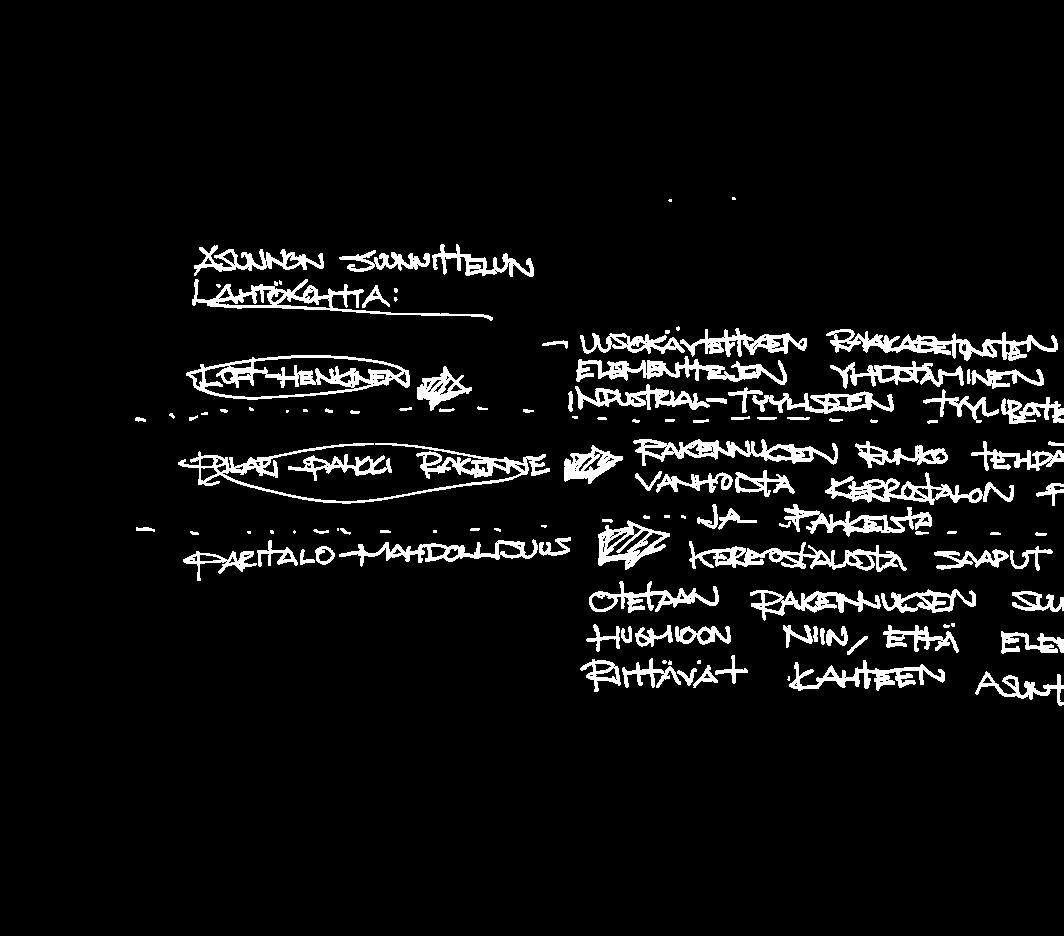 ASUNNON SUUNNITTELUN
LÄHTÖKOHTIA:
LOFT-HENKINEN
- UUSIOKÄYTETTYJEN RAAKABETONISTEN
ELEMENTTEJEN YHDISTÄMINEN
INDUSTRIAL-TYYLISEEN
PILARI-PALKKI RAKENNE
RAKENNUKSEN RUNKO TEHDÄ
VANHOISTA KERROSTALON P
JA PALKEISTA
PARITALO-MAHDOLLISUUS
KERROSTALOSTA SAAPUT
OTETAAN RAKENNUKSEN SUU
HUOMIOON NIIN, ETTÄ ELEM
RIITTÄVÄT KAHTEEN ASUNT